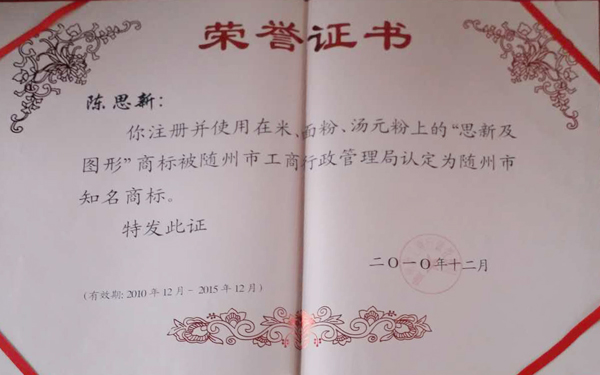 荣誉证书
陈思新：
你注册并使用在米、面粉、汤元粉上的“思新及
图形”商标被随州市工商行政管理局认定为随州市
知名商标。
特发此证
二〇一〇年十二月
(有效期:2010年12月－2015年12月)